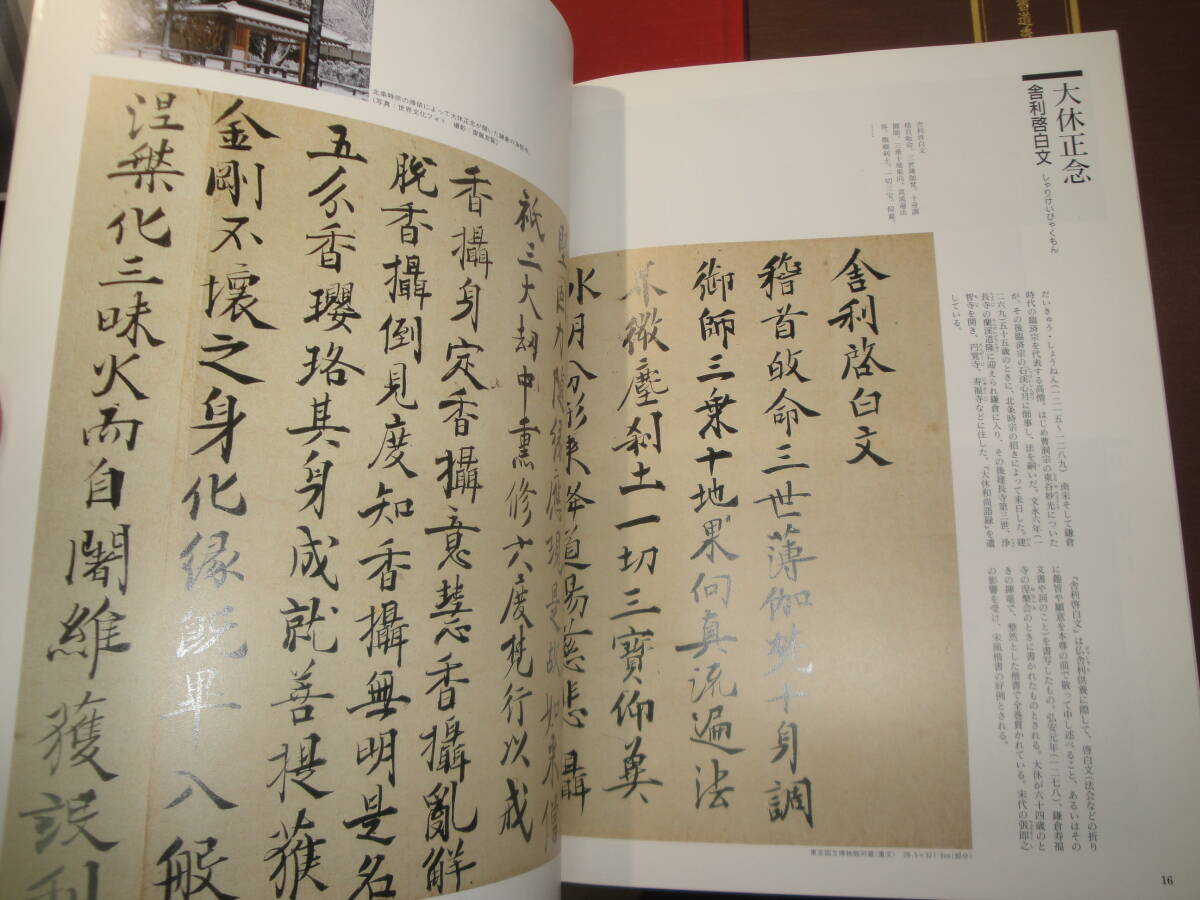 大休正念
舎利啓白文
しゃりけいびゃくもん
だいきゅう・しょうねん(一二一五~一二八九) 南宋そして鎌倉
時代の臨済宗を代表する高僧。はじめ曹洞宗の東谷妙光についた
が、その後臨済宗の石渓心月に師事し、法を嗣いだ。文永六年(一
二六九)五十五歳のときに、北条時宗の招きによって来日した。建
長寺の蘭渓道隆に迎えられ鎌倉に入り、その後建長寺第三世、浄
智寺を開き、円覚寺、寿福寺などに住した。『大休和尚語録』を遺
している。
『舎利啓白文』は仏舎利供養に際して、啓白文(法会などの祈り
に趣旨や願意を本尊の前で敬って申し述べること、あるいはその
文書や詞のこと)を書写したもの。弘安元年(一二七八)、鎌倉寿福
寺の涅槃会のときに書かれたものとされる。大休が六十四歳のと
きの揮毫で、整然とした楷書で全巻貫かれている。宋代の張即之
の影響を受け、宋風楷書の好例とされる。
舎利啓白文
舎利啓白文
稽首敀命三世薄伽梵十身調
御師三乗十地果向真流遍法
界微塵刹土一切三寶仰奠
水月分形来降道場慈悲攝
祇三大劫中熏修六度梵行以戒
香攝身定香攝意慧香攝亂解
脱香攝倒見度知香攝無明是名
五分香瓔珞其身成就善提獲
金剛不壞之身化縁既畢入般
涅槃化三昧火而自闍維獲設利
東京国立博物館所蔵(重文)
(写真:世界文化フォト
16